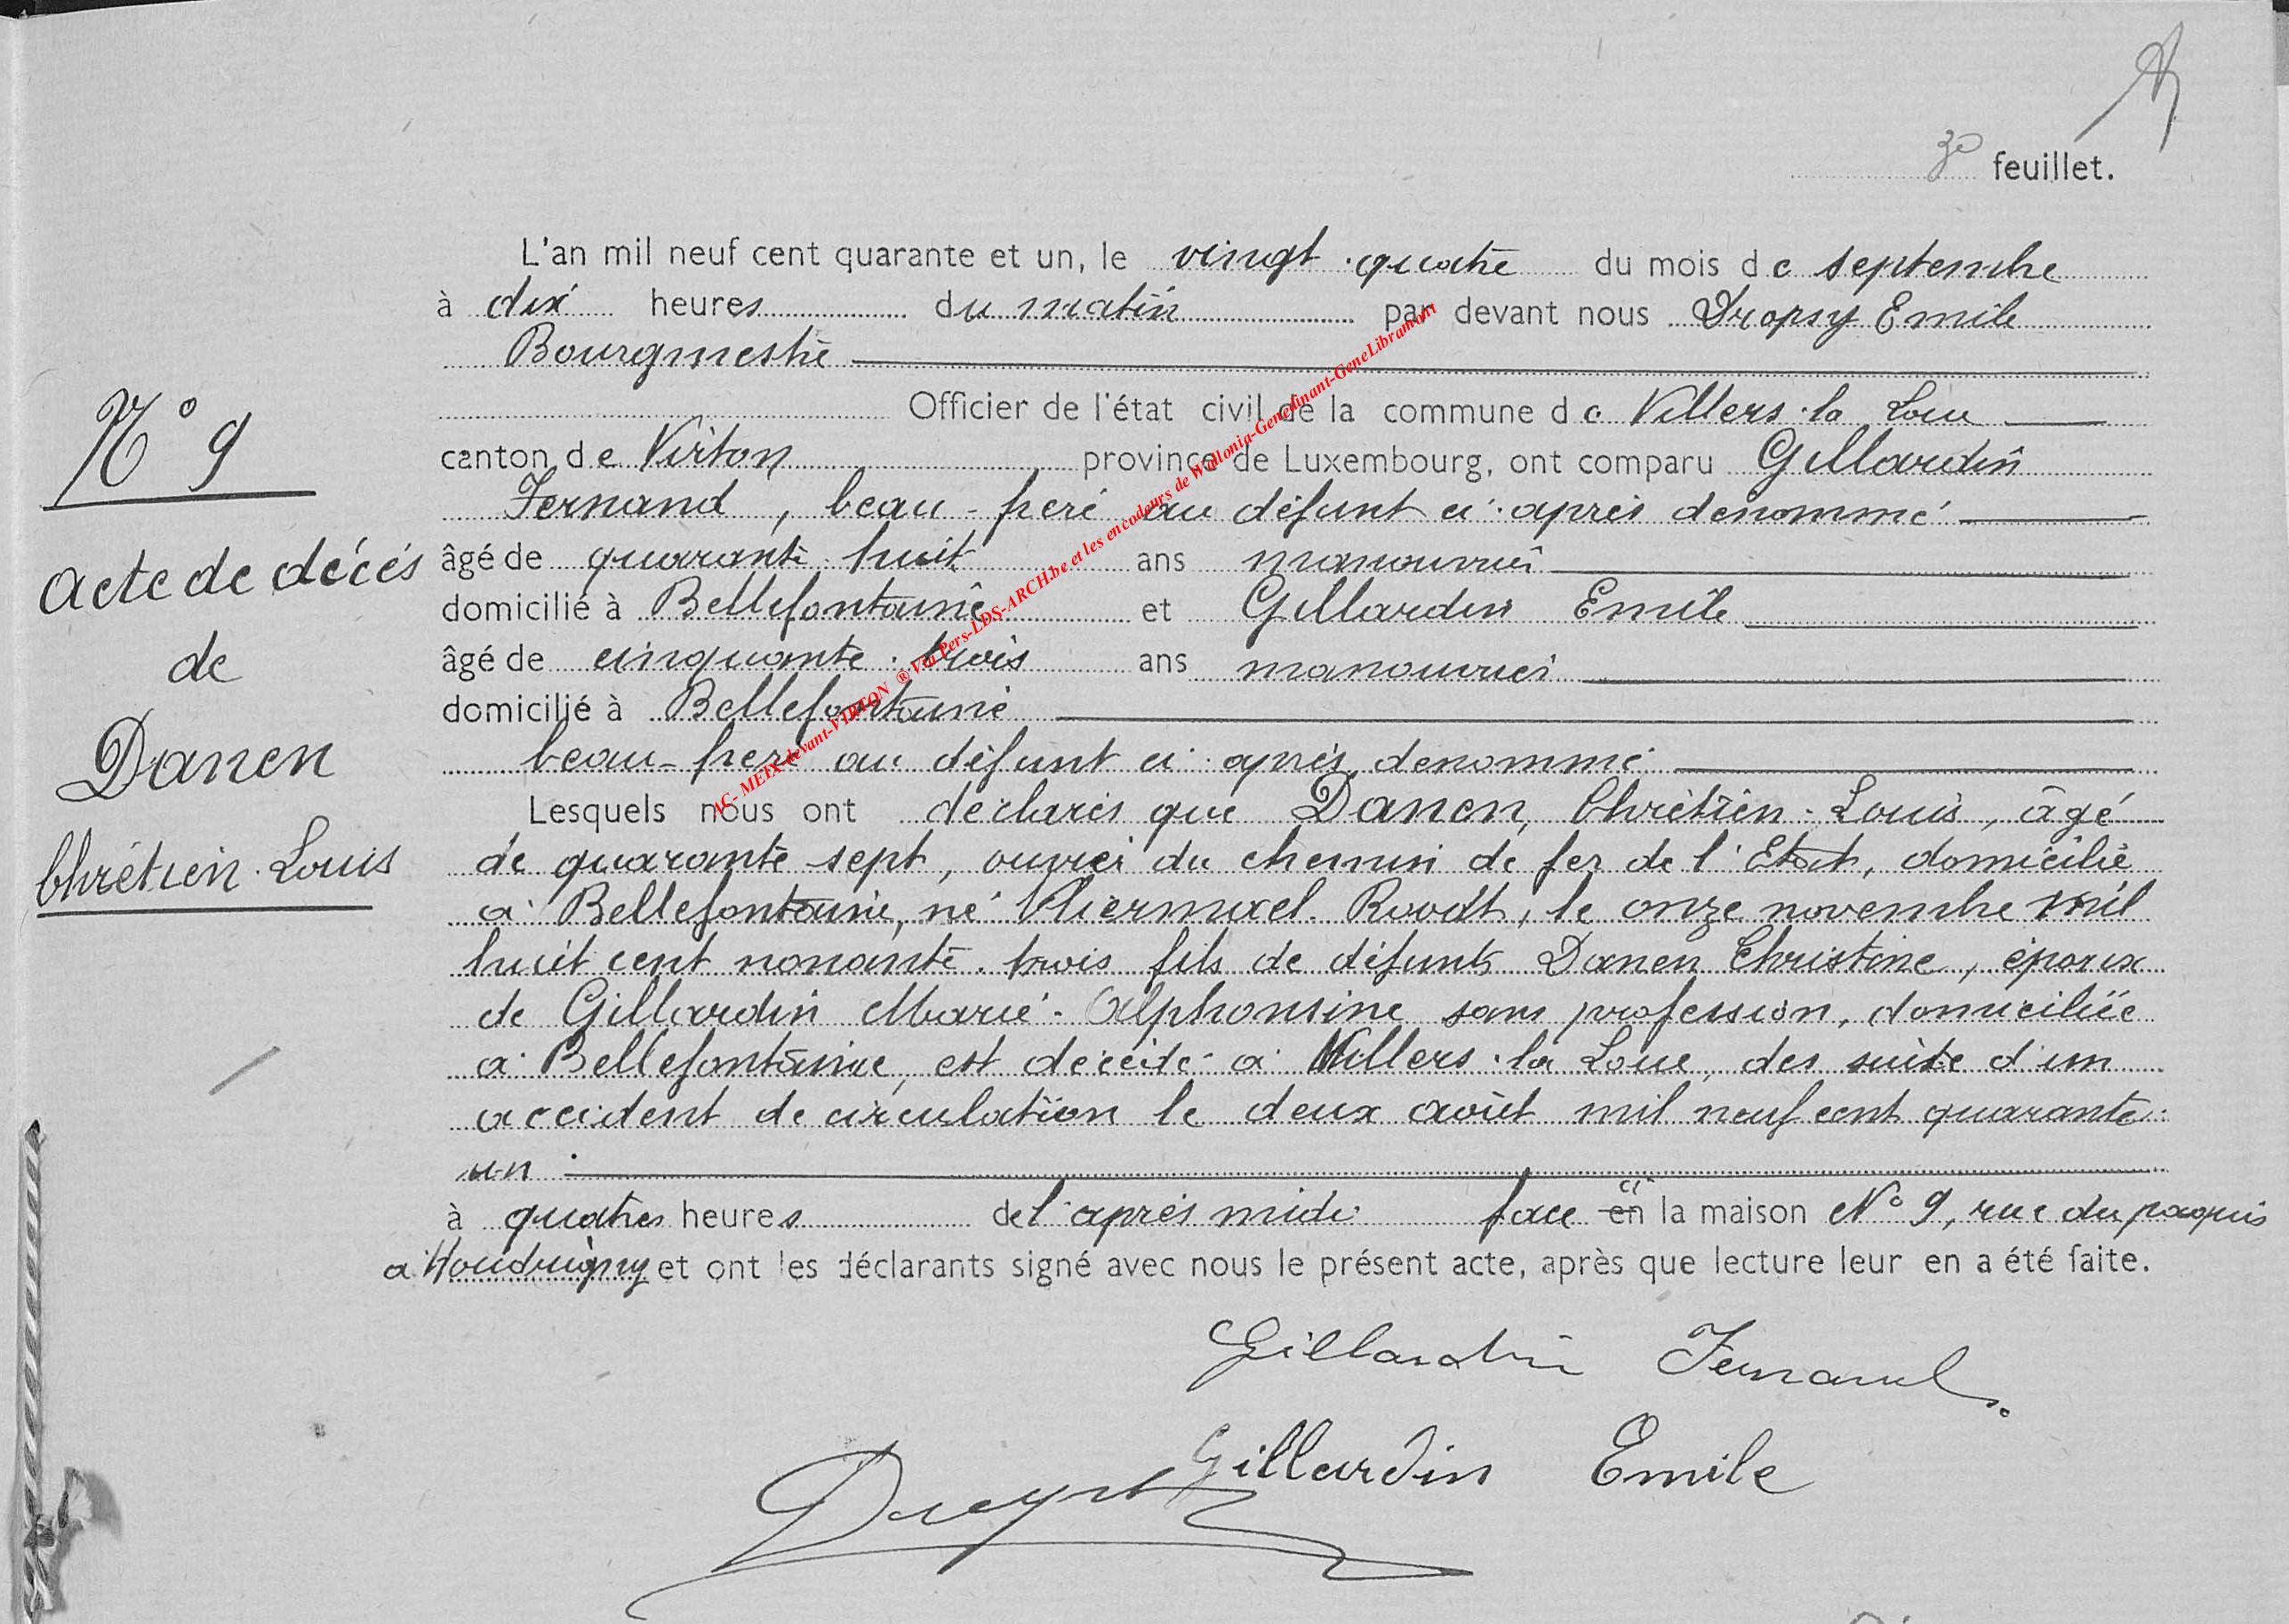 3e feuillet.
L'an mil neuf cent quarante et un, le vingt-quatre du mois de septembre
à dix heures du matin par devant nous Dropsy Emile
Bourgmestre
Officier de l'état civil de la commune de Villers-la Loue
canton de Virton province de Luxembourg, ont comparu Gillardin
Fernand, beau-frère au défunt ci-après dénommé
âgé de quarante-huit ans manouvrier
domicilié à Bellefontaine et Gillardin Emile
âgé de cinquante-trois ans manouvrier
domicilié à Bellefontaine
beau-frère au défunt ci-après dénommé
Lesquels nous ont déclarés que Danen, Chrétien-Louis, âgé
de quarante-sept, ouvrier du chemin de fer de l'Etat, domicilié
à Bellefontaine, né Roodt, le onze novembre mil
huit cent nonante-trois fils de défunts Danen Christine, époux
de Gillardin Marie-Alphonsine sans profession, domiciliée
à Bellefontaine, est décédé à Villers-la Loue, des suite d'un
accident de circulation le deux août mil neuf cent quarante-
un
à quatres heures de l'après midi face en à la maison No 9, rue du paquis
a Houdrigny et ont les déclarants signé avec nous le présent acte, après que lecture leur en a été faite.
No 9
Acte de décés
de
Danen
Chrétien-Louis
Gillardin Fernand
Gillardin Emile
Dropsy
AC- MEIX-devant-VIRTON ® Via Pers-LDS-ARCH.be et les encodeurs de Wallonia-Genedinant-GeneLibramont